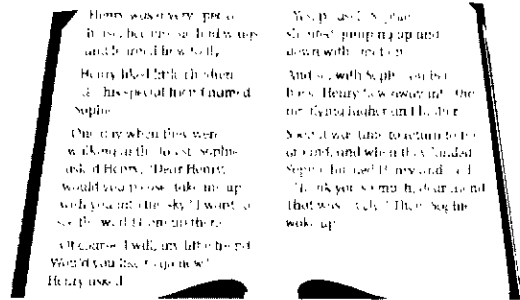 Henry was a very special
horse, because he had wings
and
Henry liked little children
his special friend named
Sophie
One day when they were
walking in the forest, Sophie
asked Henry, "Dear Henry,
would you please take me up
with you into the sky? I want to
see the world from up there."
"Of course I will, my little friend.
Would you like to go now?"
Henry asked.
"Yes, please," Sophie
shouted, jumping up and
down with
And so, with Sophie on his
back, Henry flew away into the
sky, flying higher and higher.
Soon it was time to return to the
ground, and when they landed
Sophie hugged Henry and said
"Thank you so much, dear friend.
That was lovely." Then Sophie
woke up.